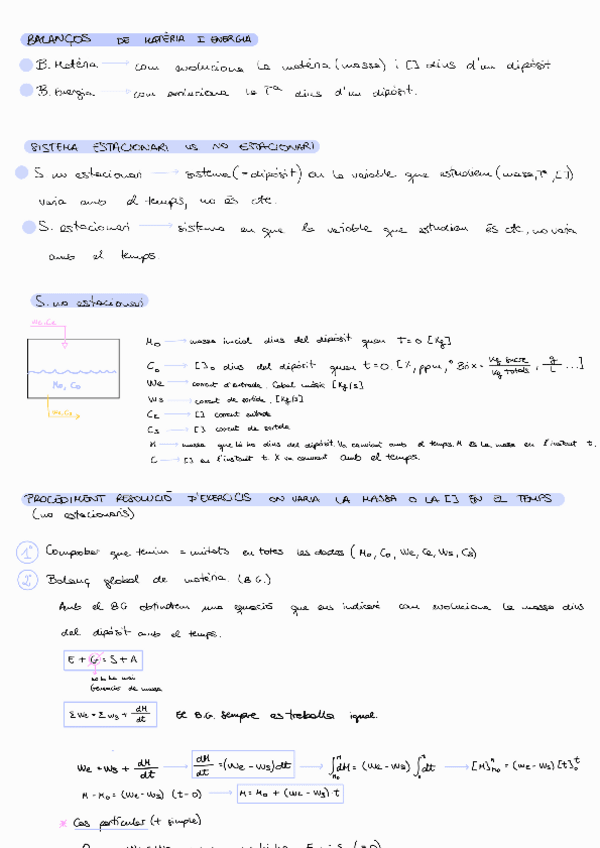 BALANÇOS DE MATÈRIA I ENERGIA
B. Matèria → com evoluciona la matèria (massa) i [] dins d'un dipòsit
B. Energia → com evoluciona la Tª dins d'un dipòsit.
SISTEMA ESTACIONARI VS NO ESTACIONARI
S no estacionari → sistema (= dipòsit) on la variable que estudiem (massa, Tª, [])
varia amb el temps, no és cte.
S. estacionari → sistema en que la variable que estudiem és cte, no varia
amb el temps.
S. no estacionari
We, Ce
M0, C0
Ws, Cs
M0 → massa inicial dins del dipòsit quan T=0 [Kg]
C0 → []0 dins del dipòsit quan t=0. [%, ppm, °Brix = Kg sucre / Kg totals, g/L ...]
We → corrent d'entrada. Cabal màssic [Kg/s]
Ws → corrent de sortida. [Kg/s]
Ce → [] corrent entrada
Cs → [] corrent de sortida
M → massa que hi ha dins del dipòsit. Va canviant amb el temps. M és la massa en l'instant t.
C → [] en l'instant t. Va canviant amb el temps.
PROCEDIMENT RESOLUCIÓ D'EXERCICIS ON VARIA LA MASSA O LA [] EN EL TEMPS
(no estacionaris)
1º Comprobar que tenim = unitats en totes les dades (M0, C0, We, Ce, Ws, Cs)
2º Balanç global de matèria. (B.G.)
Amb el BG obtindrem una equació que ens indicarà com evoluciona la massa dins
del dipòsit amb el temps.
E + G = S + A
no hi ha mai
Generació de massa
ΣWe = ΣWs + dM/dt El B.G. sempre es treballa igual.
We = Ws + dM/dt → dM/dt = (We - Ws)dt → ∫dM = (We - Ws)∫dt → [M] = (We - Ws)[t]
M - M0 = (We - Ws) (t - 0) → M = M0 + (We - Ws) · t
* Cas particular (+ simple)